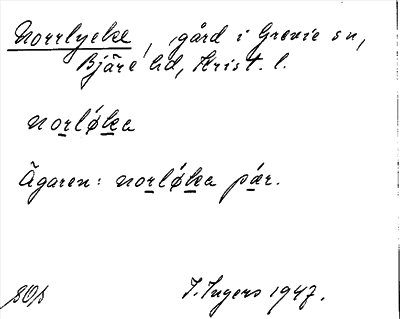 Norrlycke, gård i Grevie sn,
Bjäre hd, Krist. l.
norlǿka
Ägaren: norlǿka pár.
I. Ingers 1947.